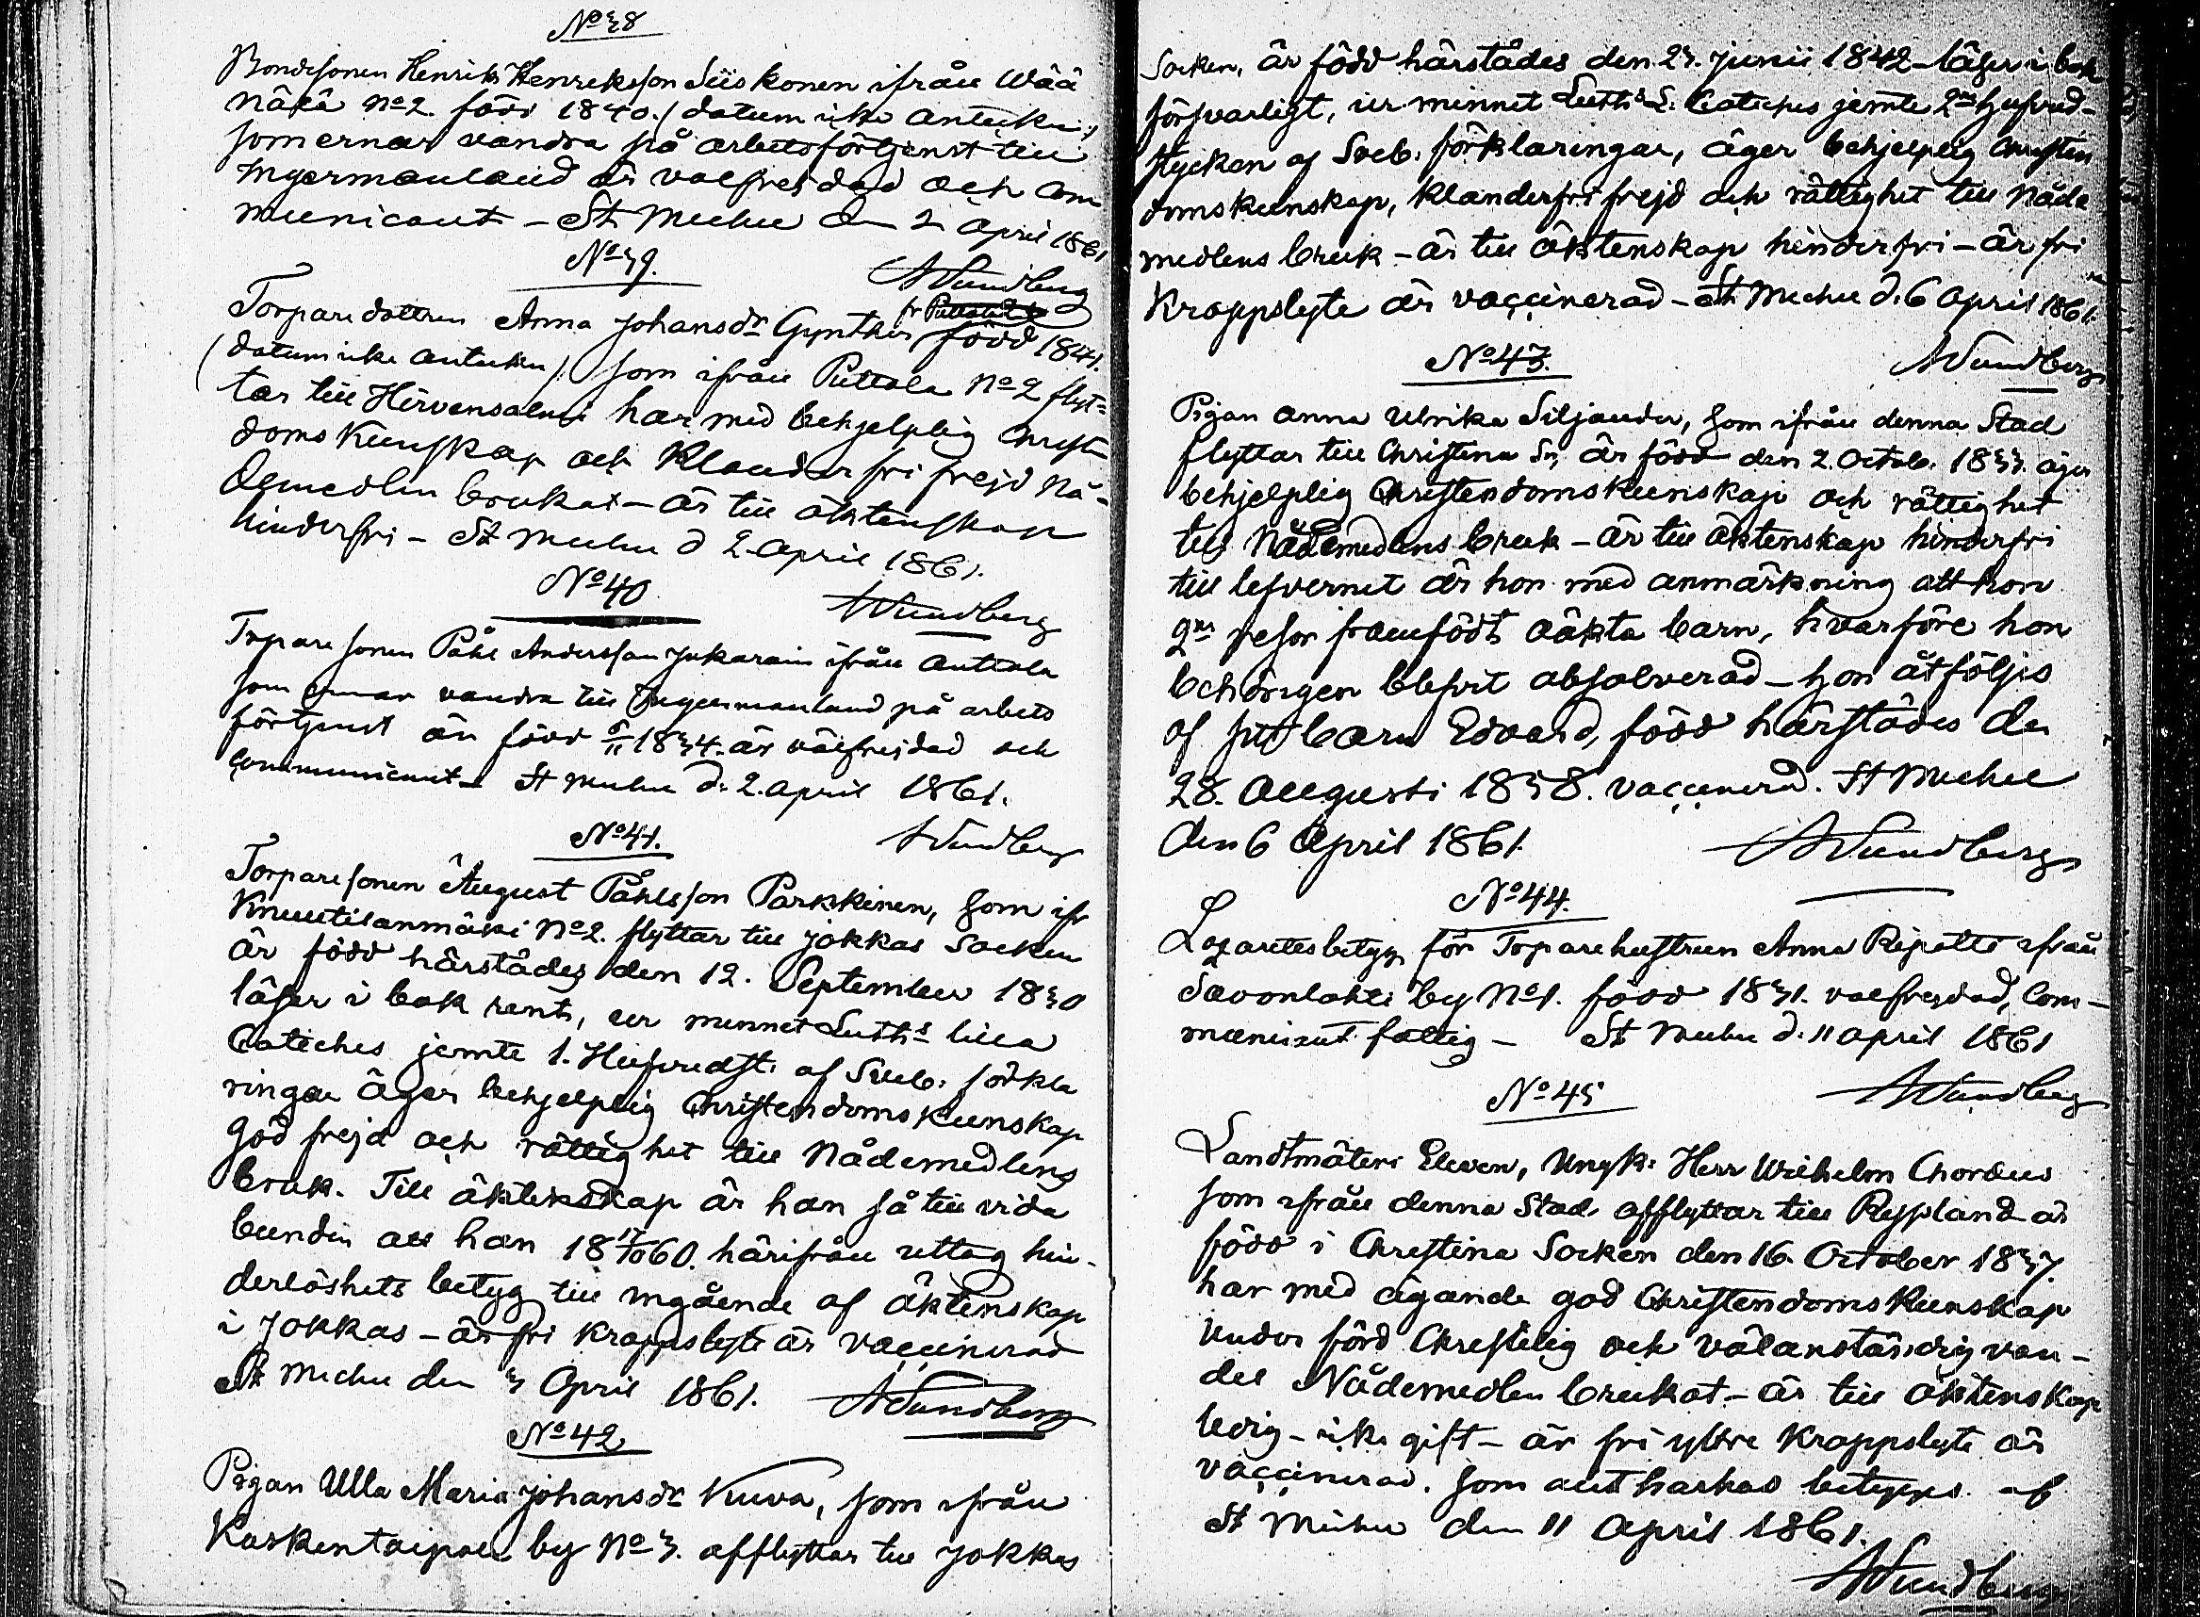 No 38
Bondesonen Henrik Henriksson Siiskonen ifrån Wää
näkä No 2. född 1840. (datum icke anteckn.)
som ernar vandra på arbetsförtjenst till
Ingermanland är välfrejdad och com
municant – St Michel den 2 April 1861
A Sundberg
No 39.
Torparedottren Anna Johansdr Gynther, född 1841.
(datum icke anteckn.) som ifrån Puttola No 2 flyt-
tar till Hirvensalmi har med behjelplig Christen
doms Kunskap och Klanderfri frejd Nå-
demedlen brukat – är till äktenskap
hinderfri – St Michel d 2 April 1861.
A Sundberg
No 40
Torparesonen Påhl Andersson Jukarain ifrån Anttola
som ernar vandra till Ingermanland på arbets
förtjenst är född 6/11 1834. är välfrejdad och
communicant – St Michel d. 2. April 1861.
A Sundberg
No 41.
Torparesonen August Påhlsson Parkkinen, som ifr
Knuutilanmäki No 2. flyttar till Jokkas Socken
är född härstädes den 12. September 1830
läser i bok rent, ur minnet Luths lilla
Cateches jemte 1. Hufvudst. af Sveb. förkla
ringar äger behjelplig Christendomskunskap
god frejd och rättighet till Nådemedlens
bruk. Till äktenskap är han så till vida
bunden att han 18 17/10 60. härifrån uttog hin-
derlöshets betyg till ingående af äktenskap
i Jokkas – är fri kroppslyte är vaccinerad
St Michel den 3 April 1861. A Sundberg
No 42
Pigan Ulla Maria Johansdr Kuva, som ifrån
Kaskentaipale by No 3. afflyttar till Jokkas
Socken, är född härstädes den 23. Junii 1842 – läser i bok
försvarligt, ur minnet Luths L. Cateches jemte 2ne Hufvud-
stycken af Sveb. förklaringar, äger behjelplig Christen
domskunskap, klanderfri frejd och rättighet till Nåde
medlens bruk – är till äktenskap hinderfri – är fri
Kroppslyte är vaccinerad – St Michel d. 6 April 1861.
A Sundberg
No 43.
Pigan Anna Ulrika Siljander, som ifrån denna Stad
flyttar till Christina Sn, är född den 2. Octob. 1833. äger
behjelplig Christendomskunskap och rättighet
till Nådemedlens bruk – är till äktenskap hinderfri
till lefvernet är hon med anmärkning att hon
2ne resor framfödt oäkta barn, hvarföre hon
behörigen blifvit absolverad – hon åtföljes
af sitt barn Edvard, född härstädes den
28. Augusti 1858. vaccinerad. St Michel
den 6 April 1861.
A Sundberg
No 44.
Lazaretsbetyg för Torparehustrun Anna Ripatti ifrån
Savonlahti by No 1. född 1831. välfrejdad, Com-
municant fattig – St Michel d. 11 April 1861
A Sundberg
No 45
Landtmäteri Eleven, Ungk. Herr Wilhelm Choræus
som ifrån denna Stad afflyttar till Ryssland är
född i Christina Socken den 16. October 1837.
har med ägande god Christendomskunskap
under förd Christelig och välanständig van-
del Nådemedlen brukat – är till äktenskap
ledig – icke gift – är fri yttre Kroppslyte är
vaccinerad. som
betygas af
St Michel den 11 April 1861.
A Sundberg